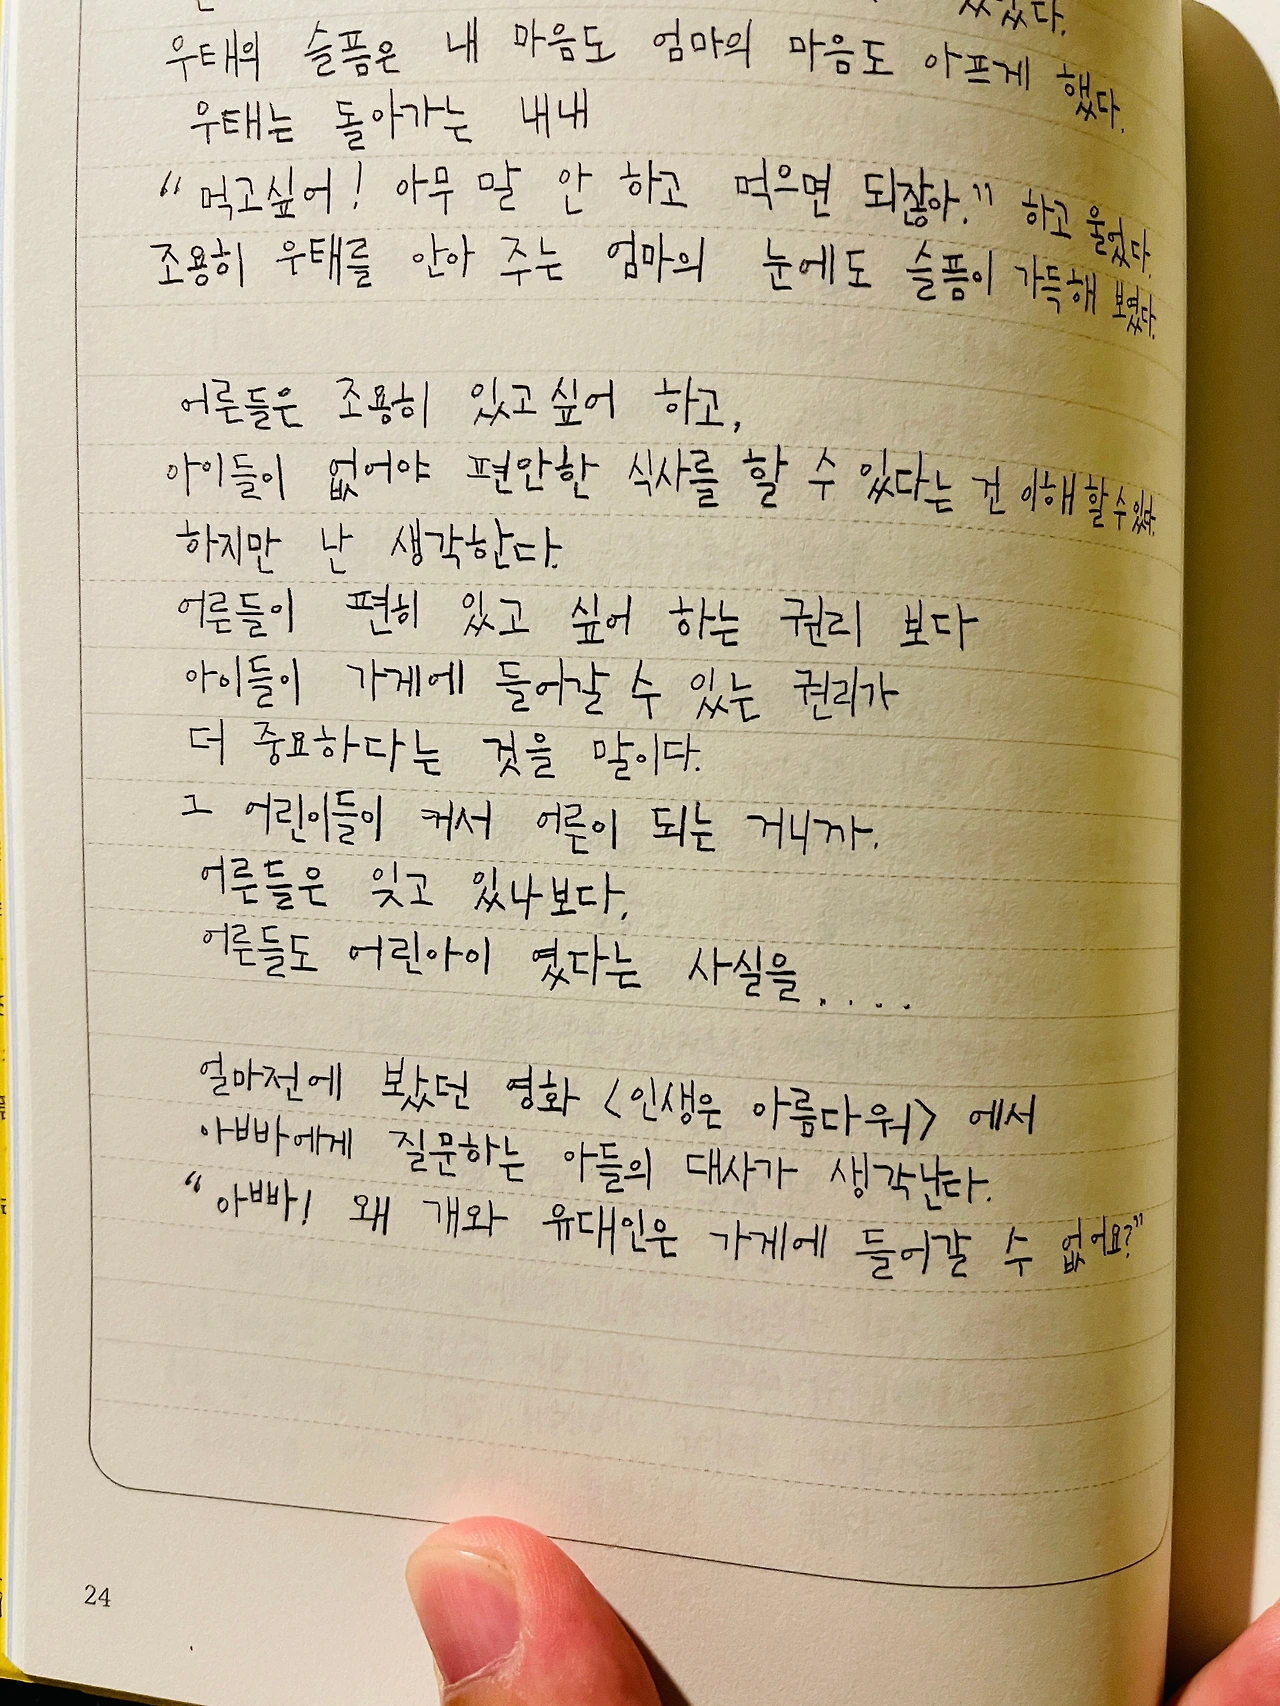 우태의 슬픔은 내 마음도 엄마의 마음도 아프게 했다.
우태는 돌아가는 내내
“먹고싶어! 아무 말 안 하고 먹으면 되잖아.” 하고 울었다.
조용히 우태를 안아 주는 엄마의 눈에도 슬픔이 가득해 보였다.
어른들은 조용히 있고싶어 하고,
아이들이 없어야 편안한 식사를 할 수 있다는 건 이해 할 수 있다.
하지만 난 생각한다.
어른들이 편히 있고 싶어 하는 권리 보다
아이들이 가게에 들어갈 수 있는 권리가
더 중요하다는 것을 말이다.
그 어린이들이 커서 어른이 되는 거니까.
어른들은 잊고 있나보다.
어른들도 어린아이 였다는 사실을....
얼마전에 봤던 영화 <인생은 아름다워> 에서
아빠에게 질문하는 아들의 대사가 생각난다.
“아빠! 왜 개와 유대인은 가게에 들어갈 수 없어요?”
24